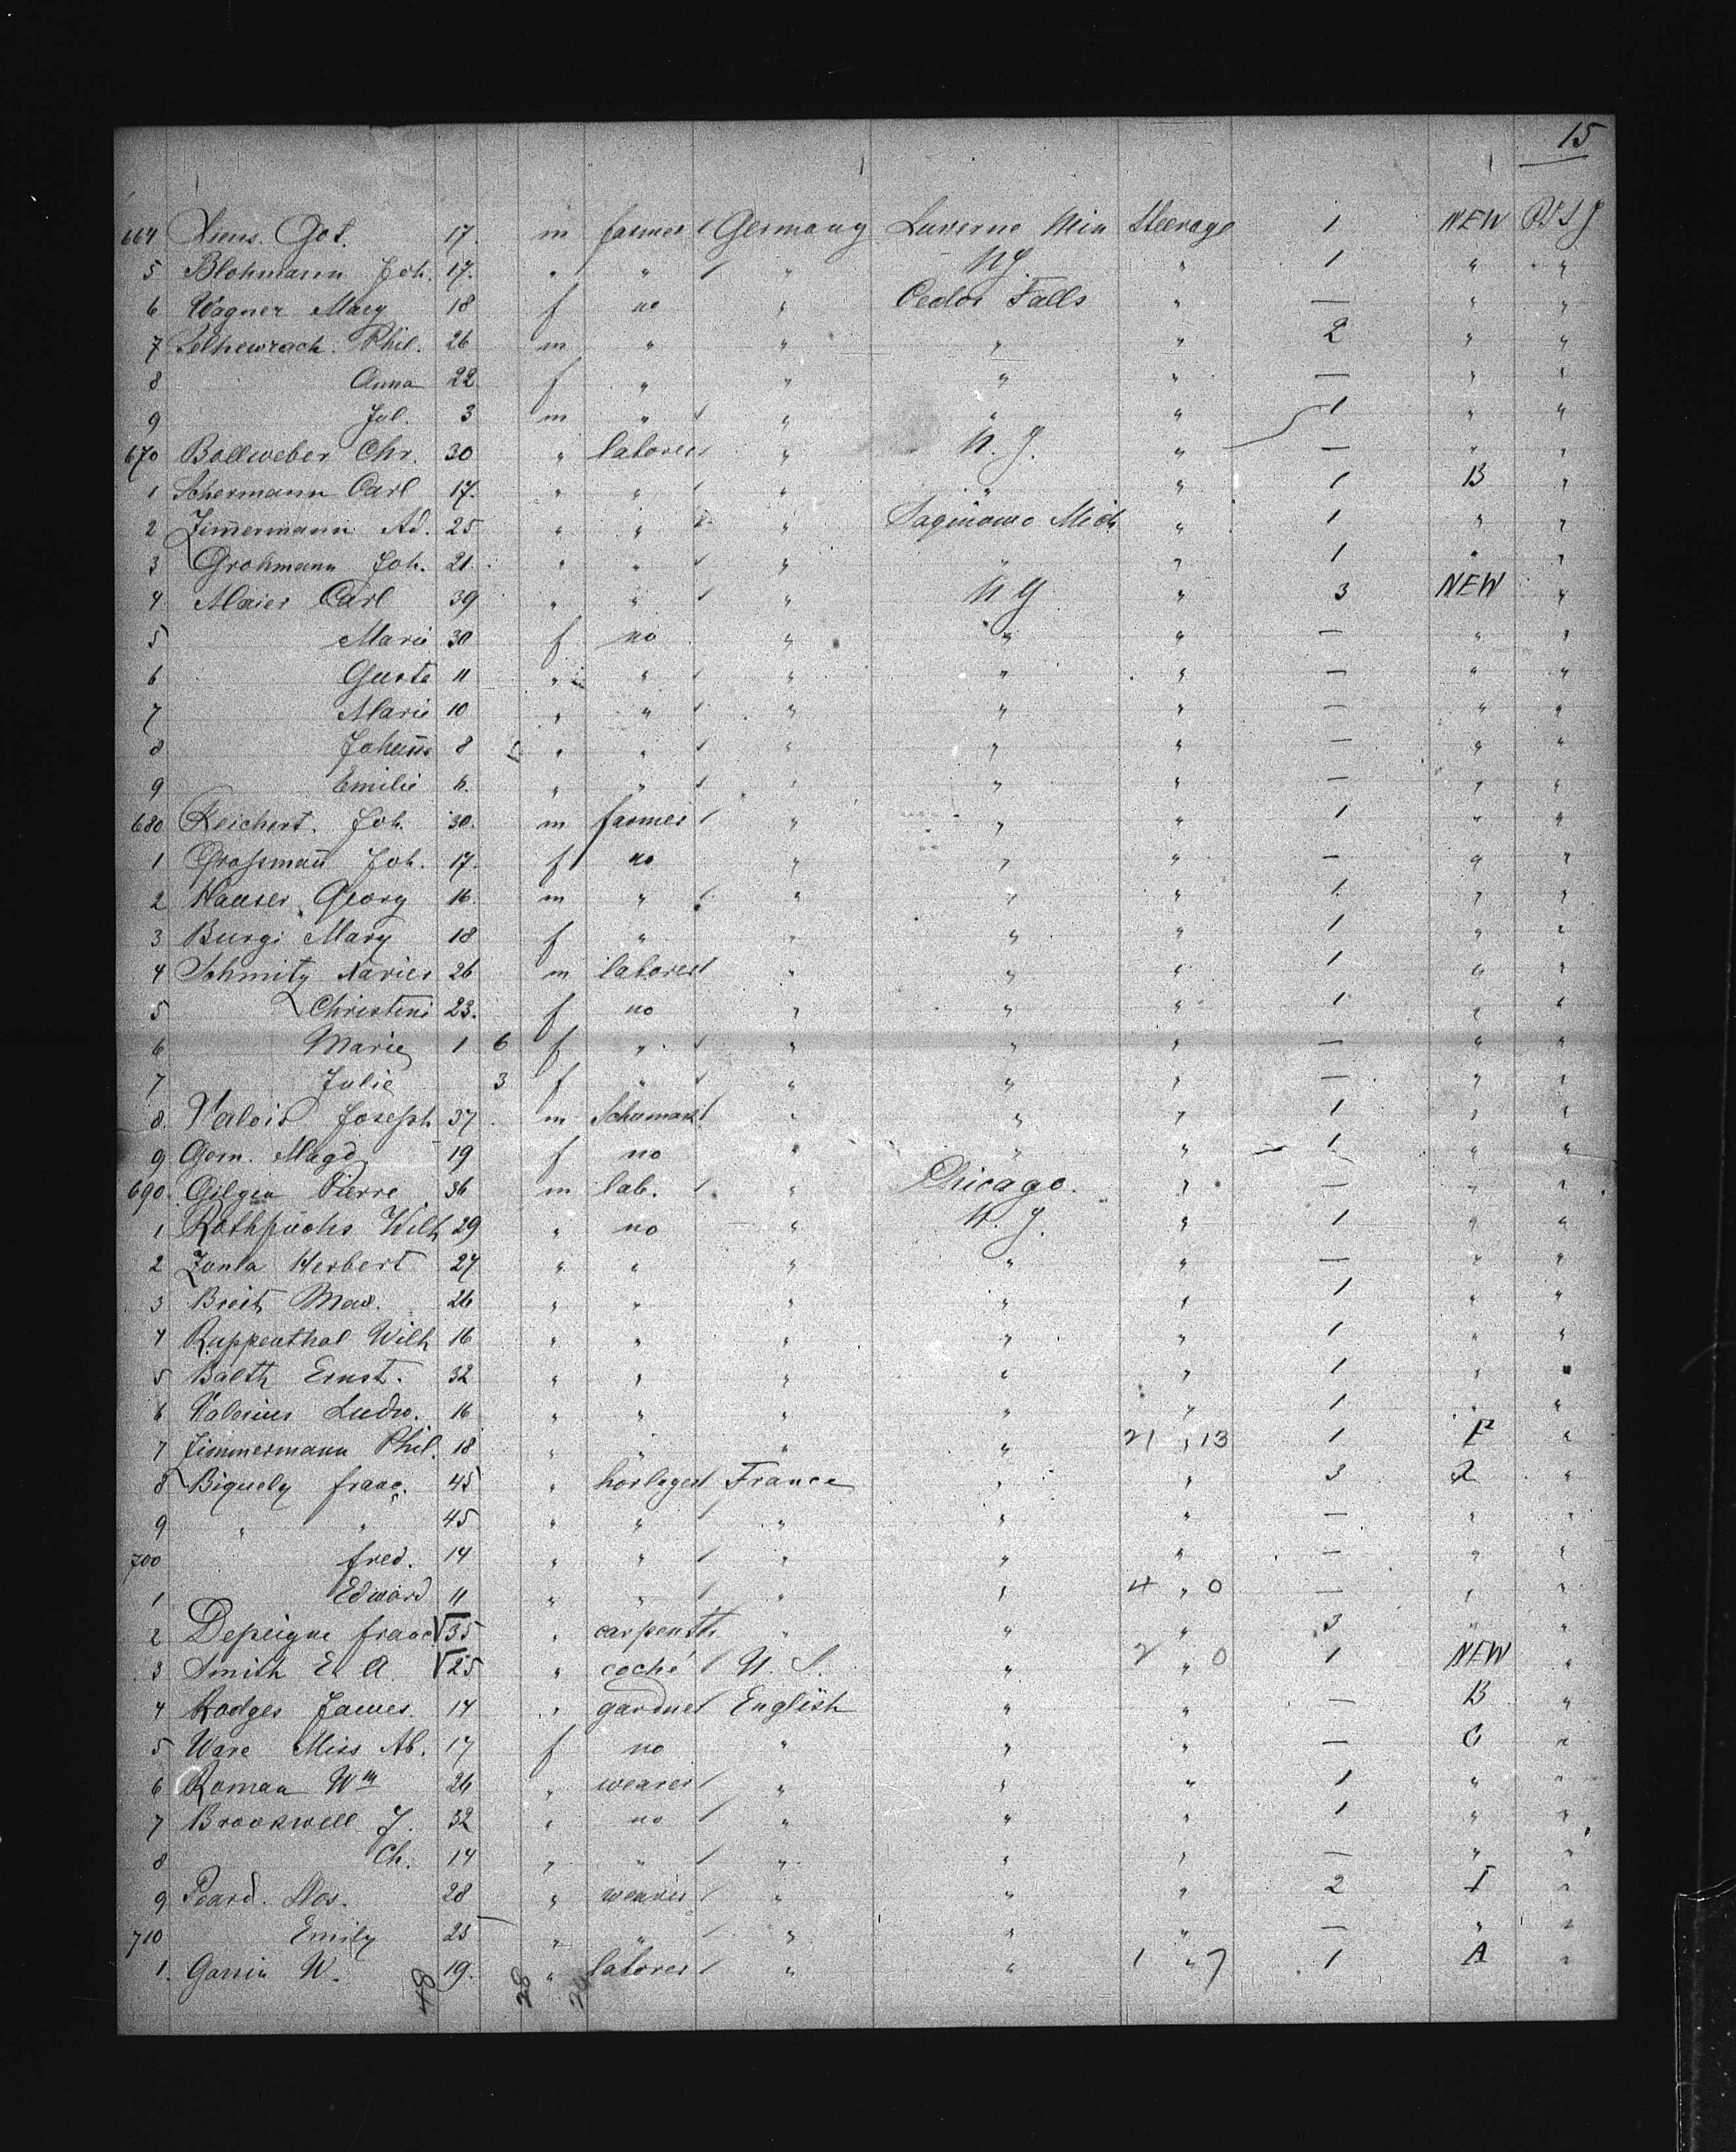 15
664 Siems. Got. 17. m farmer / Germany Luverne Min Steerage 1 NEW
5 Blohmann Joh. 17. " " / " NY. " 1 " "
6 Wagner Mary 18 f no " Cedar Falls " — " "
7 Phil. 26 m " " " " 2 " "
8 Anna 22 f " " " " — " "
9 Jol. 3 m " / " " " 1 " "
670 Bollweber Chr. 30 " laborer " N.J. " — " "
1 Schermann Carl 17. " " / " " " 1 B "
2 Zimmermann Ad. 25 " " " Saginawo Mich " 1 " "
3 Grohmann Joh. 21. " " / " " " 1 " "
4 Maier Carl 39 " " / " NY " 3 NEW "
5 Marie 30 f no " " " — " "
6 Gusta 11 " " / " " " — " "
7 Marie 10 " " / " " " — " "
8 Johanna 8 " " / " " " — " "
9 Emilie " " / " " " — " "
680 Reichert. Joh. 30. m farmer / " " " 1 " "
1 Großmañ Joh. 17. f no " " " — " "
2 Hauser Georg 16. m " / " " " 1 " "
3 Burgi Mary 18 f " " " " 1 " "
4 Schmitz Xavier 26 m laborer / " " " 1 " "
5 Christini 23. f no " " " 1 " "
6 Marie 1 6 f " / " " " — " "
7 Julie 3 f " / " " " — " "
8 Valois Joseph 37 m Schumak / " " " 1 " "
9 Gem. Magd 19 f no " " " 1 " "
690. Gilgen Pierre 36 m lab. / " Chicago. " — " "
1 Rothfuchs Wilh 29 " no " N.J. " 1 " "
2 Zunla Herbert 27 " " " " " — " "
3 Breit Max. 26 " " " " " 1 " "
4 Ruppenthal Wilh 16 " " " " " 1 " "
5 Balth Ernst. 32 " " " " " 1 " "
6 Valerius Ludw. 16 " " " " " 1 " "
7 Zimmermann Phil. 18 " " " " 21 " 13 1 "
8 Biquely franc. 45 " horloger / France " " 3 "
9 " " 45 " " / " " " — " "
700 fred. 14 " " / " " " — " "
1 Edward 11 " " / " " 4 " 0 — " "
2 Depeigne franc √35 " carpenter " " " 3 " "
3 Smith E. A. √25 " coché / U. S. " 2 " 0 1 NEW "
4 Rodges James. 14 " gardner / English " " — B "
5 Ware Miss Ab. 17 f no " " " — "
6 Roman Wm 26 " weaver / " " " 1 " "
7 Brookwell J. 32 " no / " " " 1 " "
8 Ch. 14 " " / " " " — " "
9 Peard. 28 " weaver / " " " 2 I "
710 Emily 25 " " / " " " — " "
1. W. 19. " laborer / " " 1 " 7 1 A "
48 28